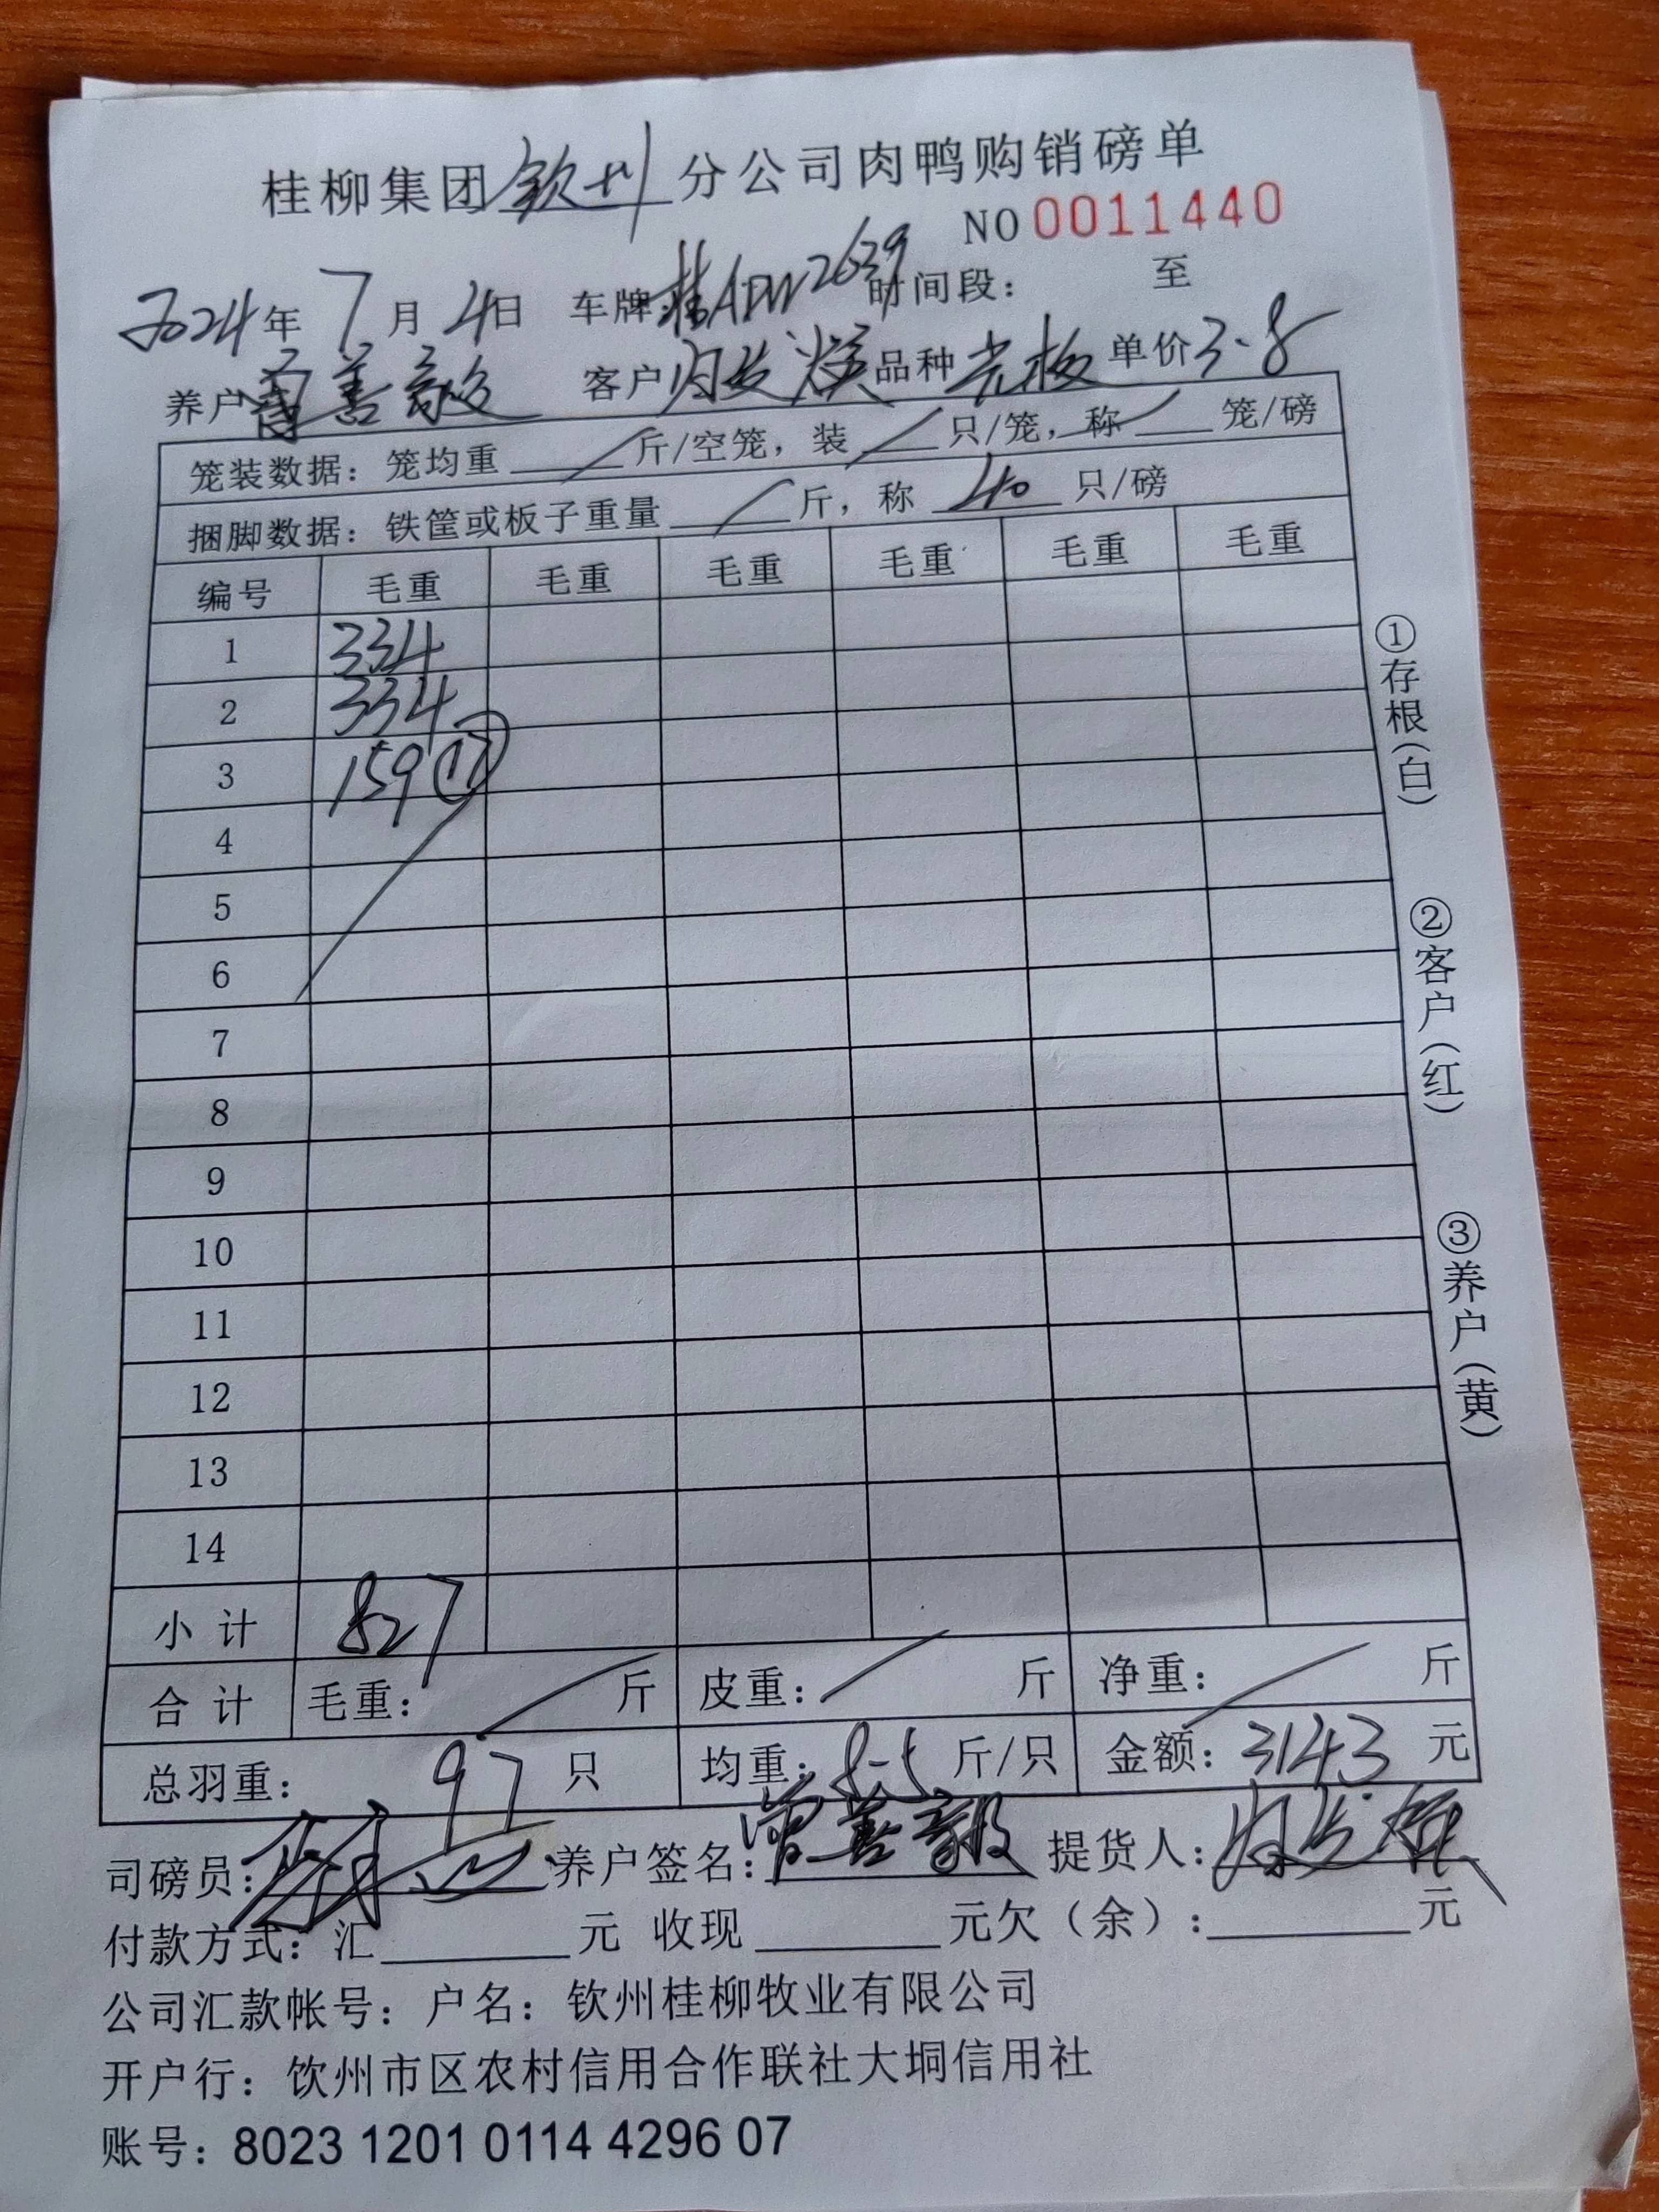 桂柳集团钦州分公司肉鸭购销磅单
NO 0011440
2024年7月4日 车牌:桂ADW2639 时间段: 至
养户曾善毅 客户 品种 老板 单价3.8
笼装数据:笼均重 斤/空笼,装 只/笼,称 笼/磅
捆脚数据:铁筐或板子重量 斤,称 40 只/磅
编号 毛重 毛重 毛重 毛重 毛重 毛重
1 334
2 334
3 159 ⑰
4
5
6
7
8
9
10
11
12
13
14
小计 827
合计 毛重: 斤 皮重: 斤 净重: 斤
总羽重: 97 只 均重:8.5 斤/只 金额:3143 元
司磅员: 养户签名:曾善毅 提货人:
付款方式:汇 元 收现 元欠(余): 元
公司汇款帐号:户名:钦州桂柳牧业有限公司
开户行:钦州市区农村信用合作联社大垌信用社
账号:8023 1201 0114 4296 07
①存根(白)
②客户(红)
③养户(黄)